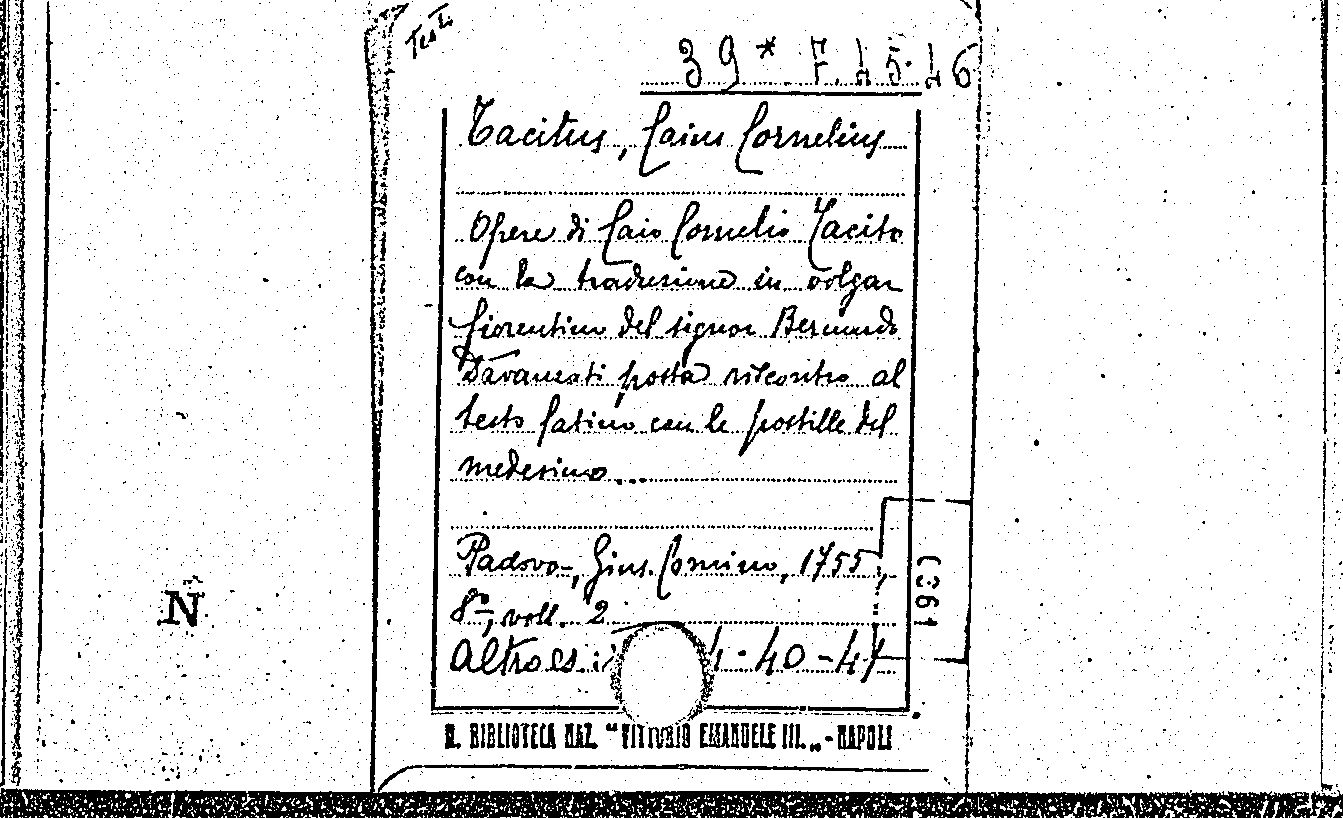 Testi
39* F. 45-46
Tacitus, Caius Cornelius
Opere di Caio Cornelio Tacito
con la traduzione in volgar
fiorentino del signor Bernardo
Davanzati posta rilcontro al
testo latino con le postille del
medesimo...
Padova, Gius. Comino, 1755,
8º, voll. 2
Altro es.: 4-40-41
(1931
N
R. BIBLIOTECA NAZ. "VITTORIO EMANUELE III.„ - NAPOLI